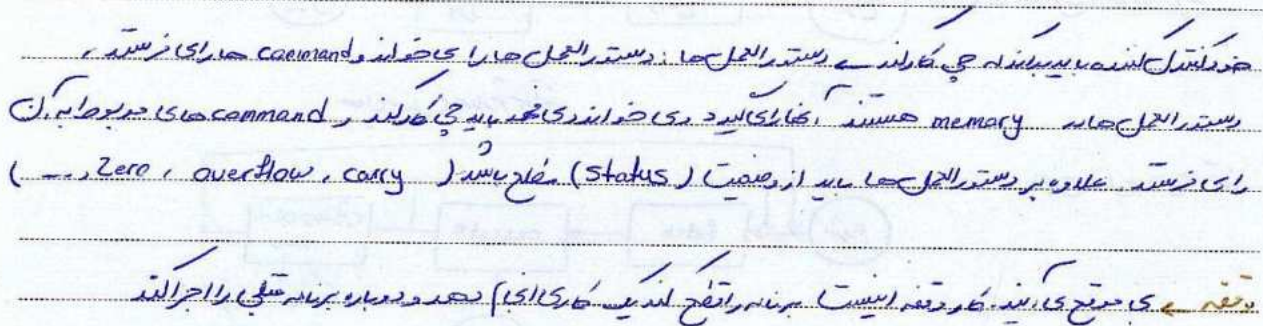 خود کنترل کننده باید بداند که چی کار کند ← دستورالعمل ها : دستورالعمل ها را می خواند و command ها را می فرستد .
دستورالعمل ها در memory هستند آنها را می گیرد و می خواند و می فهمد باید چی کار کند و command های مربوط به آن
را می فرستد . علاوه بر دستورالعمل ها باید از وضعیت (Status) مطلع باشد ( carry ، overflow ، Zero ، ... )
وقفه ← بی موقع می آیند . کار وقفه اینست برنامه را قطح کند یک کاری انجام دهد و دوباره برنامه قبلی را اجرا کند